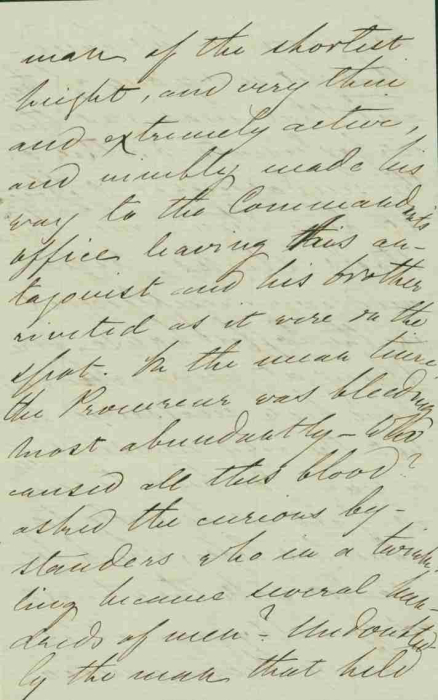 man of the shortest
hight, and very thin
and extremely active,
and nimbly made his
way to the Commandants
office leaving this an-
tagonist and his brother
riveted as it were on the
spot. In the mean time
the Procureur was bleeding
most abundantly – Who
caused all this blood?
asked the curious by-
standers who in a twink-
ling became several hun-
dreds of men? Undoubted-
ly the man that held